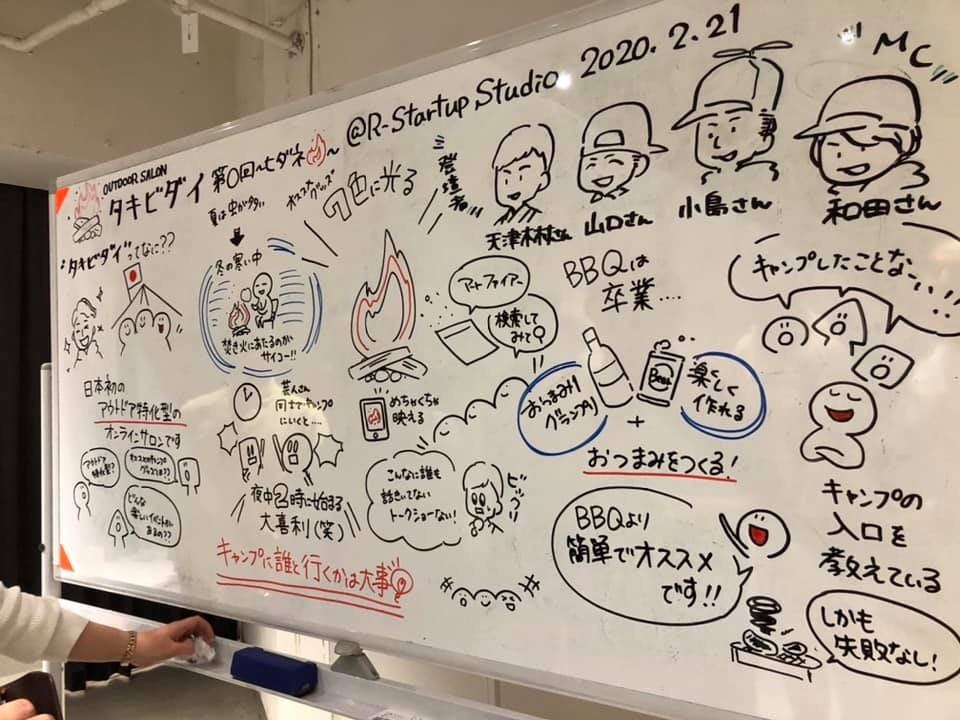 OUTDOOR SALON
タキビダイ 第0回〜七ダネ〜
@R-Startup Studio 2020.2.21
"MC"
登壇者
天津木村さん
山口さん
小島さん
和田さん
タキビダイってなに??
日本初の
アウトドア特化型の
オンラインサロンです
アウトドア
特化型?
オススメのキャンプ
グッズとは??
どんな
楽しいイベントが
あるの??
夏は虫が多い
冬の寒い中
焚き火にあたるのが
サイコー!!
芸人さん
同士でキャンプ
にいくと....
夜中2時に始まる
大喜利(笑)
キャンプに誰と行くかは大事
オススメグッズ
7色に光る
アートファイアー
検索して
みて
めちゃくちゃ
映える
こんなに誰も
話きいてない
トークショーない!
ビックリ
BBQは
卒業....
おつまみ
グランプリ
Beer
楽しく
作れる
+
おつまみをつくる!
BBQより
簡単でオススメ
です!!
キャンプしたことない...!!
キャンプの
入口を
教えている
しかも
失敗なし!